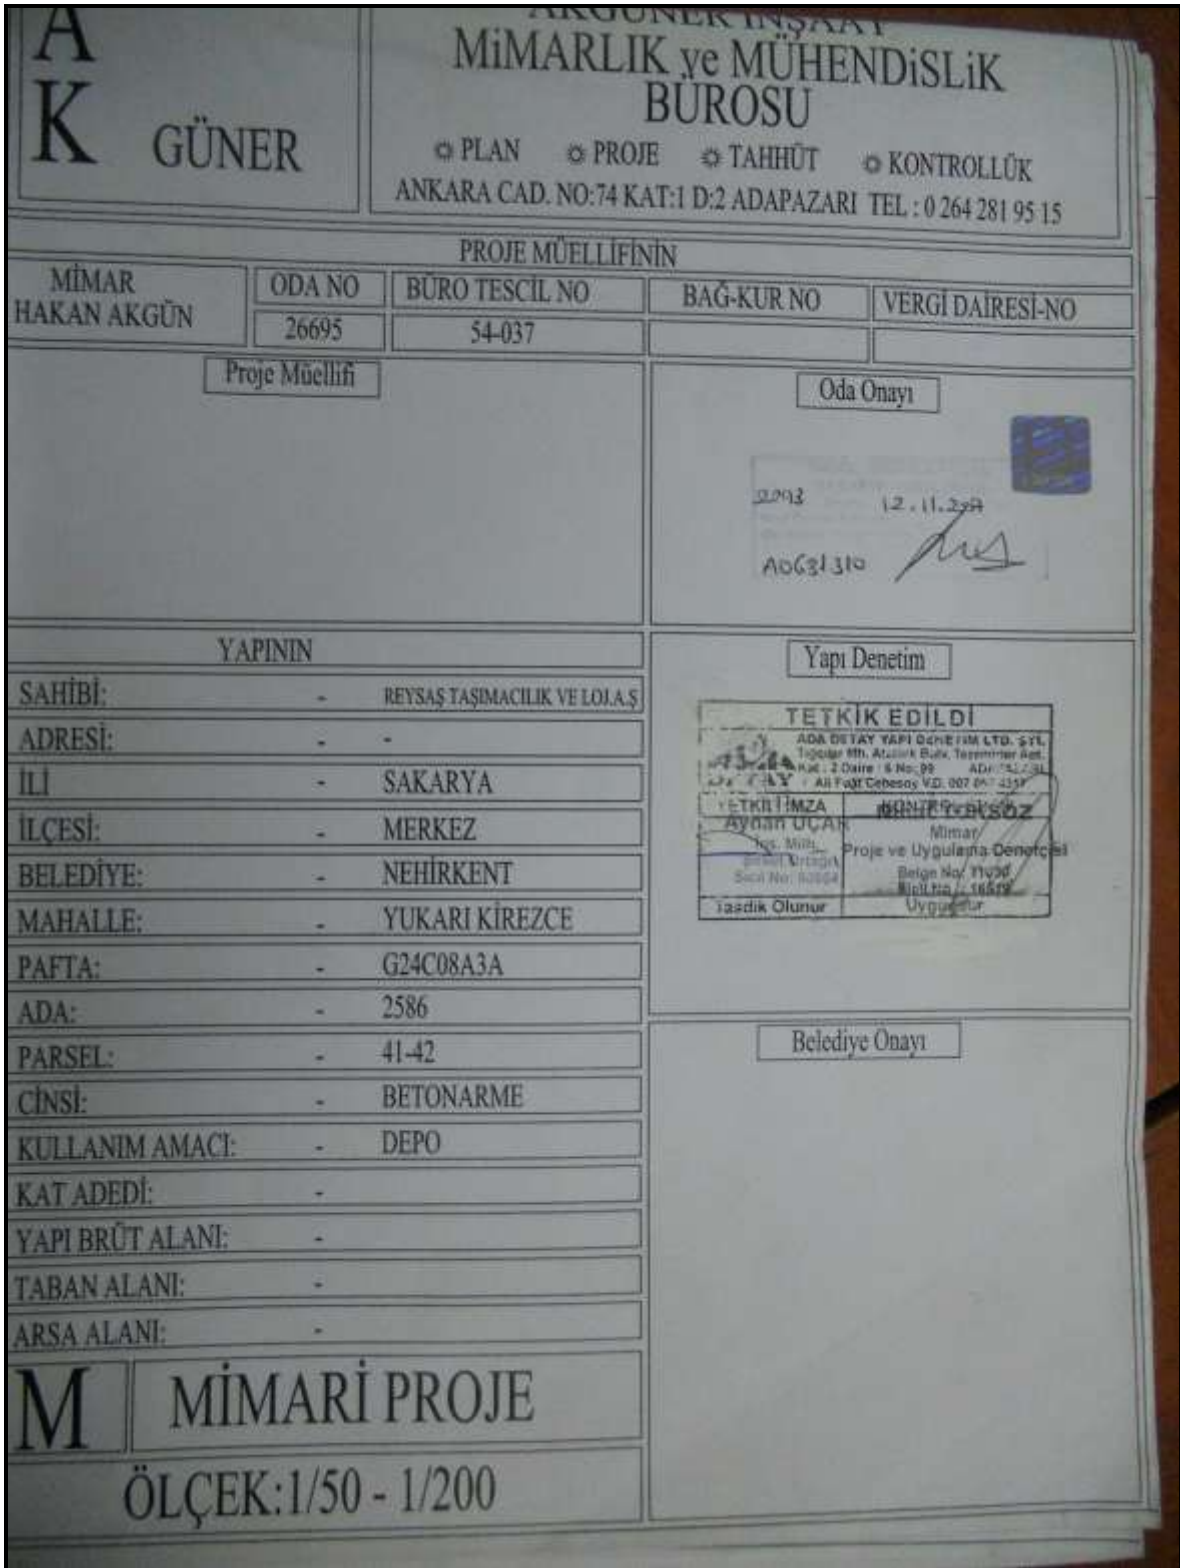 A
K GÜNER
AKGÜNER İNŞAAT
MiMARLIK ve MÜHENDiSLiK
BÜROSU
PLAN PROJE TAHHÜT KONTROLLÜK
ANKARA CAD. NO:74 KAT:1 D:2 ADAPAZARI TEL : 0 264 281 95 15
PROJE MÜELLİFİNİN
MİMAR
HAKAN AKGÜN
ODA NO BÜRO TESCİL NO BAĞ-KUR NO VERGİ DAİRESİ-NO
26695 54-037
Proje Müellifi
Oda Onayı
12.11.
A0631310
YAPININ
SAHİBİ: - REYSAŞ TAŞIMACILIK VE LOJ.A.Ş
ADRESİ: - -
İLİ - SAKARYA
İLÇESİ: - MERKEZ
BELEDİYE: - NEHİRKENT
MAHALLE: - YUKARI KİREZCE
PAFTA: - G24C08A3A
ADA: - 2586
PARSEL: - 41-42
CİNSİ: - BETONARME
KULLANIM AMACI: - DEPO
KAT ADEDİ: -
YAPI BRÜT ALANI: -
TABAN ALANI: -
ARSA ALANI: -
M MİMARİ PROJE
ÖLÇEK:1/50 - 1/200
Yapı Denetim
TETKİK EDİLDİ
ADA DETAY YAPI DENETİM LTD. ŞTİ.
YETKİLİ İMZA
Ayhan UÇAR
İnş. Müh.
Mimar
Proje ve Uygulama Denetçisi
Belge No:
Tasdik Olunur
Uygundur
Belediye Onayı